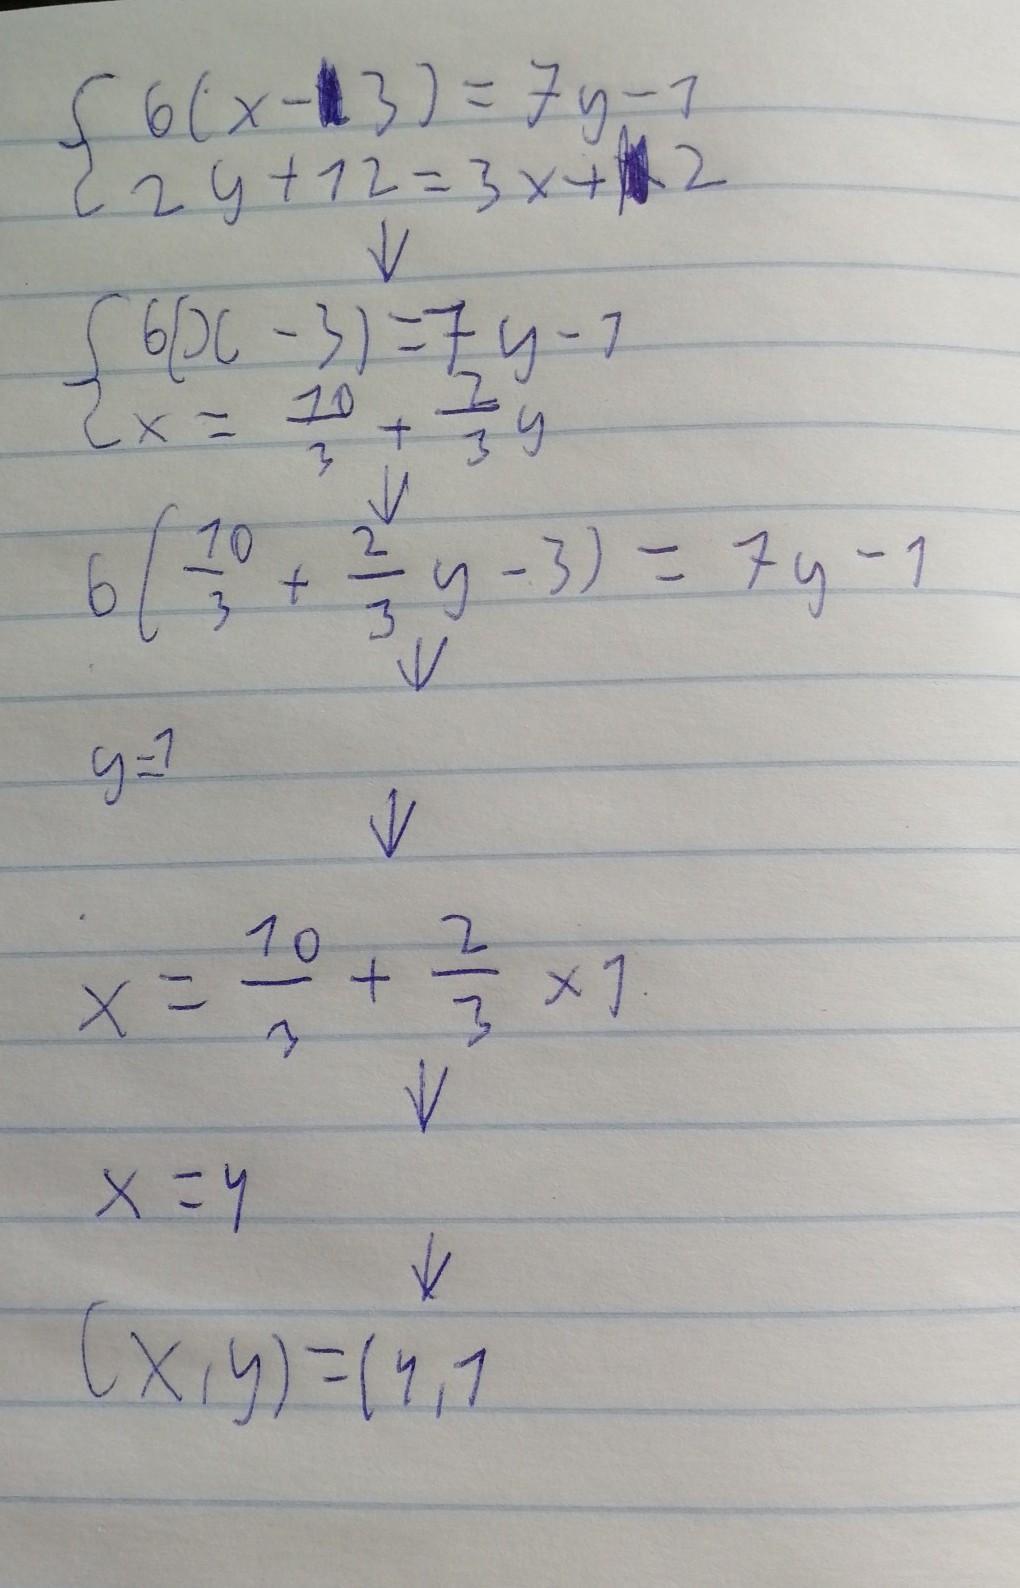 { 6(x-3)=7y-1
{ 2y+12=3x+2
↓
{ 6(x-3)=7y-1
{ x = 10/3 + 2/3 y
↓
6(10/3 + 2/3 y - 3) = 7y-1
↓
y=1
↓
x = 10/3 + 2/3 x 1
↓
x = 4
↓
(x,y)=(4,1